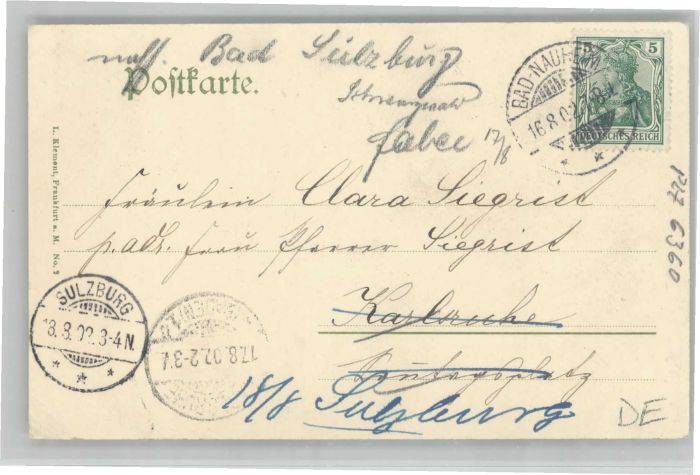 nach Bad Sulzburg
Postkarte.
Schwarzwald
17/8
5
BAD-NAUHEIM
16.8.02.
DEUTSCHES REICH
L. Klement, Frankfurt a. M. No. 2
Fräulein Clara Siegrist
p. adr. Frau Pfarrer Siegrist
Karlsruhe
SULZBURG
18.8.02.3-4N.
17.8.02.2-3V.
18/8 Sulzburg
DE
PLZ 6360